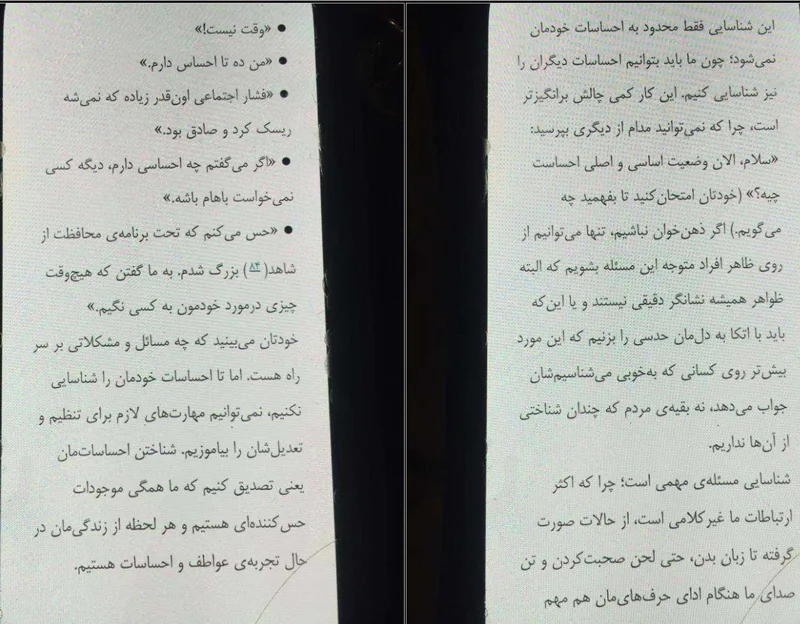 • «وقت نیست!»
• «من ده تا احساس دارم.»
• «فشار اجتماعی اون‌قدر زیاده که نمی‌شه
ریسک کرد و صادق بود.»
• «اگر می‌گفتم چه احساسی دارم، دیگه کسی
نمی‌خواست باهام باشه.»
• «حس می‌کنم که تحت برنامه‌ی محافظت از
شاهد(۸۴) بزرگ شدم. به ما گفتن که هیچ‌وقت
چیزی درمورد خودمون به کسی نگیم.»
خودتان می‌بینید که چه مسائل و مشکلاتی بر سر
راه هست. اما تا احساسات خودمان را شناسایی
نکنیم، نمی‌توانیم مهارت‌های لازم برای تنظیم و
تعدیل‌شان را بیاموزیم. شناختن احساسات‌مان
یعنی تصدیق کنیم که ما همگی موجودات
حس‌کننده‌ای هستیم و هر لحظه از زندگی‌مان در
حال تجربه‌ی عواطف و احساسات هستیم.
این شناسایی فقط محدود به احساسات خودمان
نمی‌شود؛ چون ما باید بتوانیم احساسات دیگران را
نیز شناسایی کنیم. این کار کمی چالش برانگیزتر
است، چرا که نمی‌توانید مدام از دیگری بپرسید:
«سلام، الان وضعیت اساسی و اصلی احساست
چیه؟» (خودتان امتحان‌کنید تا بفهمید چه
می‌گویم.) اگر ذهن‌خوان نباشیم، تنها می‌توانیم از
روی ظاهر افراد متوجه این مسئله بشویم که البته
ظواهر همیشه نشانگر دقیقی نیستند و یا این‌که
باید با اتکا به دل‌مان حدسی را بزنیم که این مورد
بیش‌تر روی کسانی که به‌خوبی می‌شناسیم‌شان
جواب می‌دهد، نه بقیه‌ی مردم که چندان شناختی
از آن‌ها نداریم.
شناسایی مسئله‌ی مهمی است؛ چرا که اکثر
ارتباطات ما غیرکلامی است، از حالات صورت
گرفته تا زبان بدن، حتی لحن صحبت‌کردن و تن
صدای ما هنگام ادای حرف‌های‌مان هم مهم